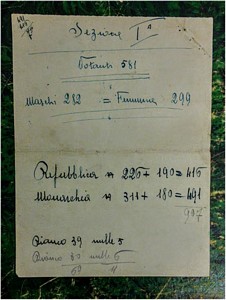 Sezione Iª
Votanti 581
Maschi 282 = Femmine 299
Repubblica n 226+ 190=416
Monarchia n 311+ 180=491
907
Bianco 39 nulle 5
Bianco 30 nulle 6
69 11